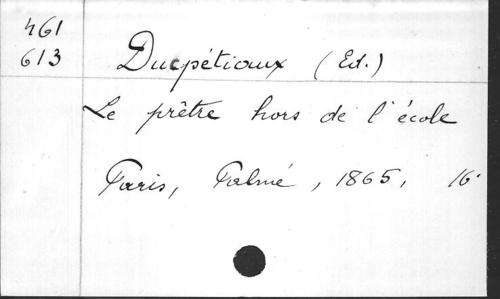 461
613
Ducpétiaux (Ed.)
Le prêtre hors de l'école
Paris, Palmé, 1865, 16°